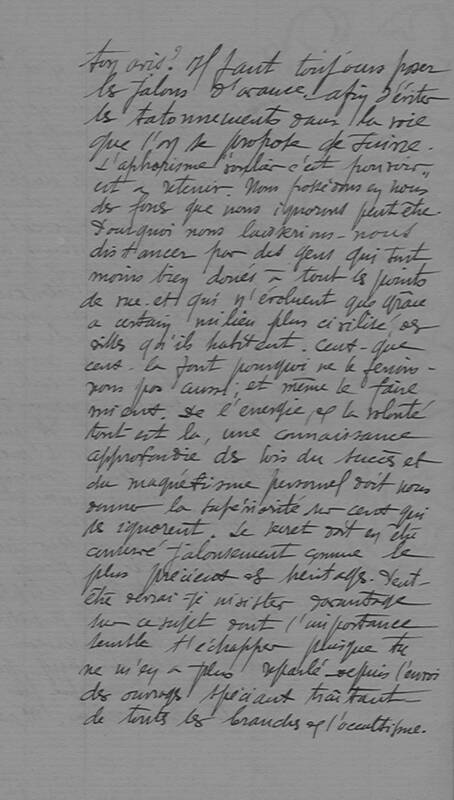 ton avis? Il faut toujours poser
les jalons d'avance, afin d'éviter
les tatonnements dans la voie
que l'on se propose de suivre.
L'aphorisme "vouloir c'est pouvoir"
est a retenir. Nous possédons en nous
des forces que nous ignorons peut être.
Pourquoi nous laisserions-nous
distancer par des gens qui sont
moins bien doués à tout les points
de vue et qui n'évoluent que grâce
a certain milieu plus civilisé, des
villes qu'ils habitent. Ceux-que
ceux-la font pourquoi ne le ferions-
nous pas aussi, et même le faire
mieux. De l'énergie, de la volonté
tout est la, une connaissance
approfondie des lois du succès et
du magnétisme personnel doit nous
donner la supériorité sur ceux qui
les ignorent. Le secret doit en être
conservé jalousement comme le
plus précieux des héritages. Peut-
être devrai-je insister davantage
sur ce sujet dont l'importance
semble t'échapper puisque tu
ne m'en a plus reparlé depuis l'envoi
des ouvrages spéciaux traitant
de toutes les branches de l'occultisme.